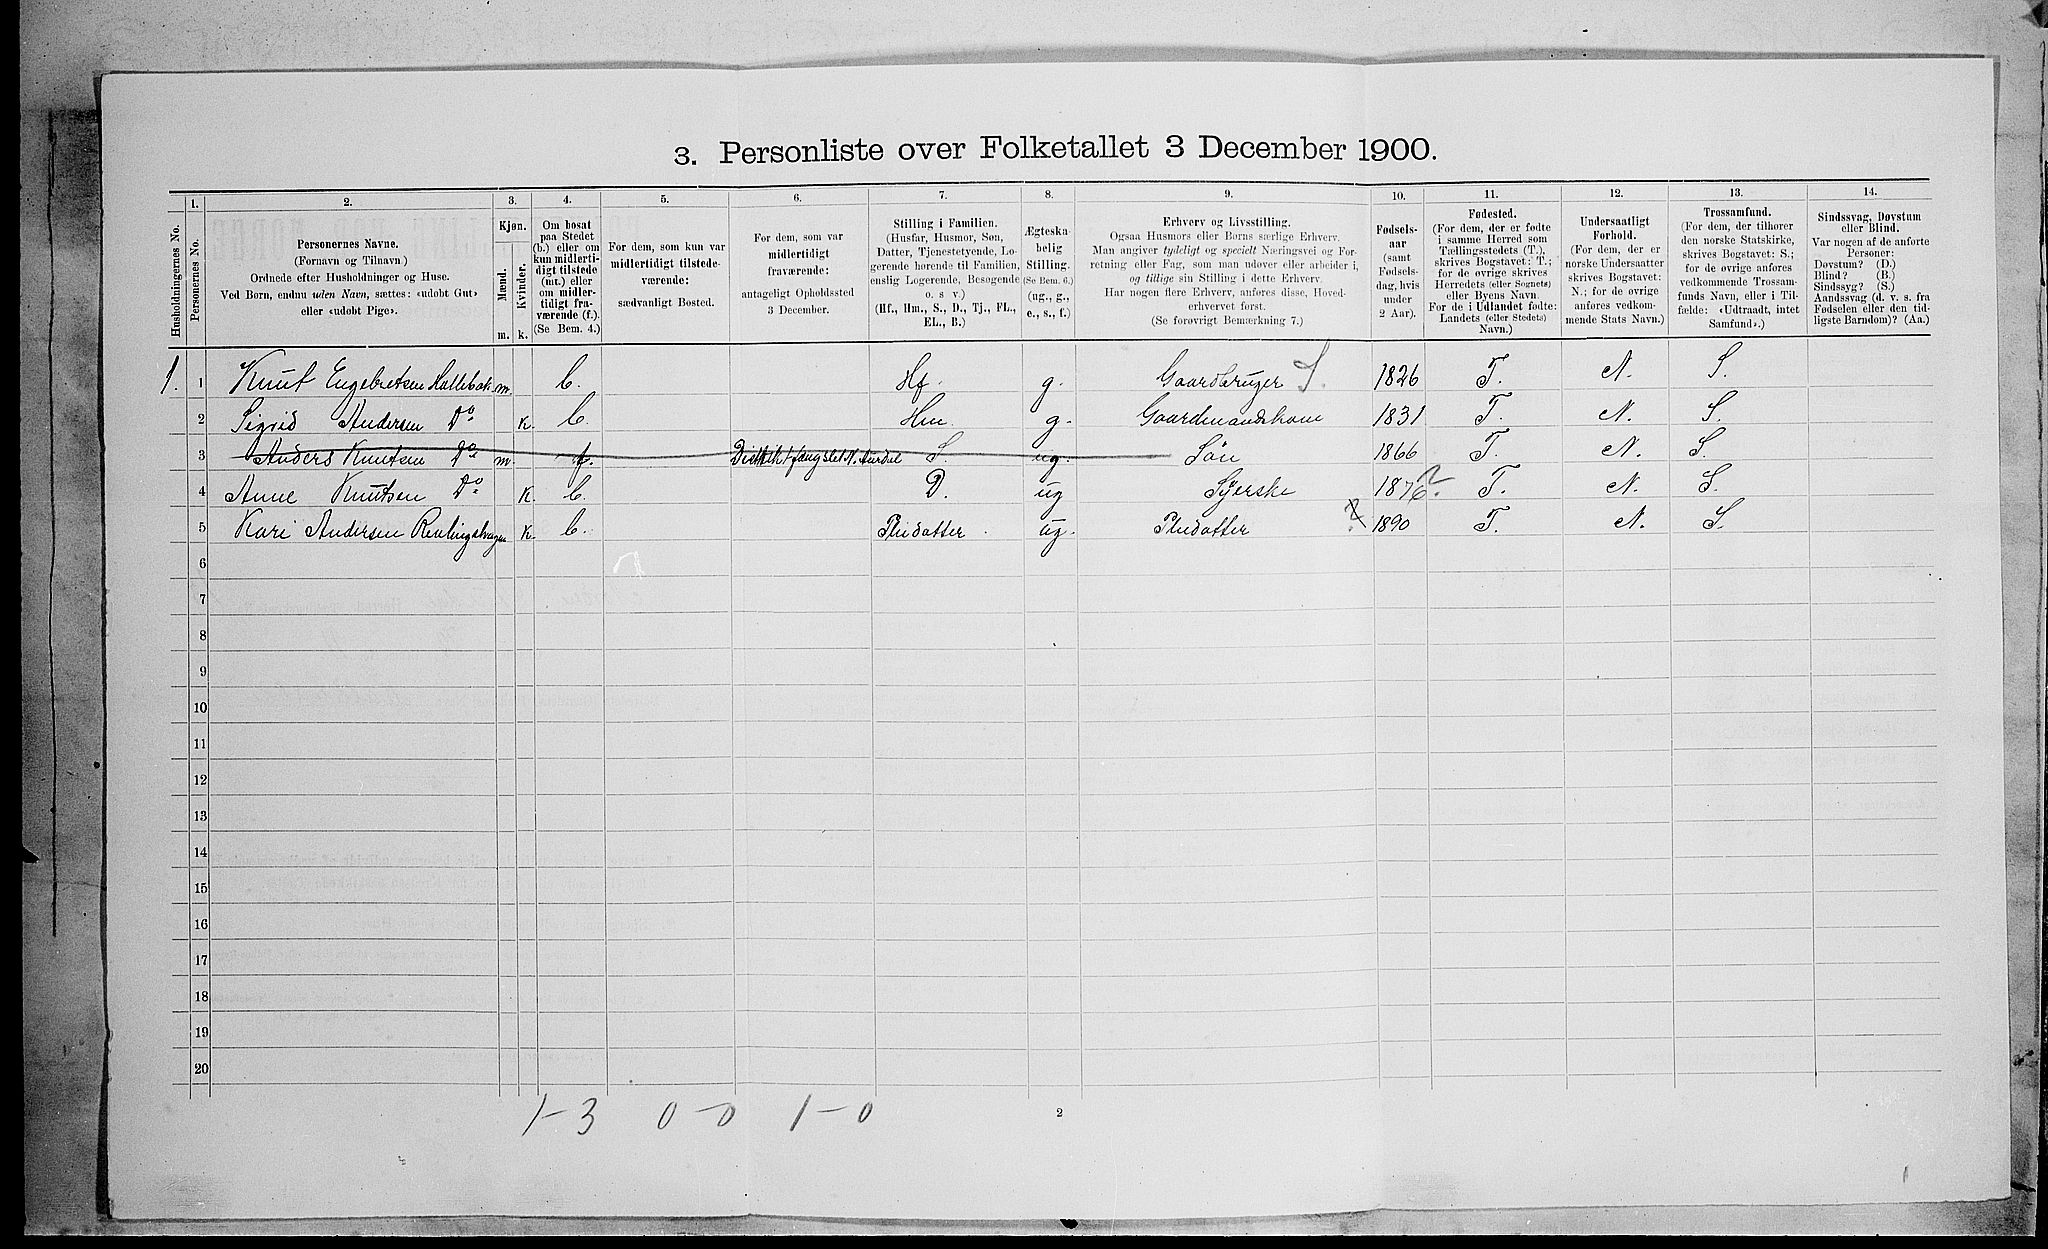 3. Personliste over Folketallet 3 December 1900.
1. 2. 3. 4. 5. 6. 7. 8. 9. 10. 11. 12. 13. 14.
Husholdningernes No.
Personernes No.
Personernes Navne.
(Fornavn og Tilnavn.)
Ordnede efter Husholdninger og Huse.
Ved Børn, endnu uden Navn, sættes: «udøbt Gut»
eller «udøbt Pige».
Kjøn.
Mænd.
Kvinder.
m. k.
Om bosat
paa Stedet
(b.) eller om
kun midlerti-
digt tilstede
(mt.) eller
om midler-
tidigt fra-
værende (f.).
(Se Bem. 4.)
For dem, som kun var
midlertidigt tilstede-
værende:
sædvanligt Bosted.
For dem, som var
midlertidigt
fraværende:
antageligt Opholdssted
3 December.
Stilling i Familien.
(Husfar, Husmor, Søn,
Datter, Tjenestetyende, Lo-
gerende hørende til Familien,
enslig Logerende, Besøgende
o. s v.)
(Hf., Hm., S., D., Tj., FL.,
EL., B.)
Ægteska-
belig
Stilling.
(Se Bem. 6.)
(ug., g.,
e., s., f.)
Erhverv og Livsstilling.
Ogsaa Husmors eller Børns særlige Erhverv.
Man angiver tydeligt og specielt Næringsvei og For-
retning eller Fag, som man udøver eller arbeider i,
og tillige sin Stilling i dette Erhverv.
Har nogen flere Erhverv, anføres disse, Hoved-
erhvervet først.
(Se forøvrigt Bemærkning 7.)
Fødsels-
aar
(samt
Fødsels-
dag, hvis
under
2 Aar).
Fødested.
(For dem, der er fødte
i samme Herred som
Tællingsstedets (T.),
skrives Bogstavet: T.;
for de øvrige skrives
Herredets (eller Sognets)
eller Byens Navn.
For de i Udlandet fødte:
Landets (eller Stedets)
Navn.)
Undersaatligt
Forhold.
(For dem, der er
norske Undersaatter
skrives Bogstavet:
N.; for de øvrige
anføres vedkom-
mende Stats Navn.)
Trossamfund.
(For dem, der tilhører
den norske Statskirke,
skrives Bogstavet: S.;
for de øvrige anføres
vedkommende Trossam-
funds Navn, eller i Til-
fælde: «Udtraadt, intet
Samfund».)
Sindssvag, Døvstum
eller Blind.
Var nogen af de anførte
Personer:
Døvstum? (D.)
Blind? (B.)
Sindssyg? (S.)
Aandssvag (d. v. s. fra
Fødselen eller den tid-
ligste Barndom)? (Aa.)
1. 1 Knut Engebretsen Hallebak m. b. Hf. g. Gaardbruger S. 1826 T. N. S.
2 Sigrid Andersen Do k. b. Hm. g. Gaardmandskone 1831 T. N. S.
3 Anders Knutsen Do m. f. N. Aurdal S. ug. Søn 1866 T. N. S.
4 Anne Knutsen Do k. b. D. ug Syerske 1876 ?. T. N. S.
5 Kari Andersen k. b. Pleidatter ug. Pleidatter 1890 T. N. S.
6
7
8
9
10
11
12
13
14
15
16
17
18
19
20
1-3 0-0 1-0
2
1